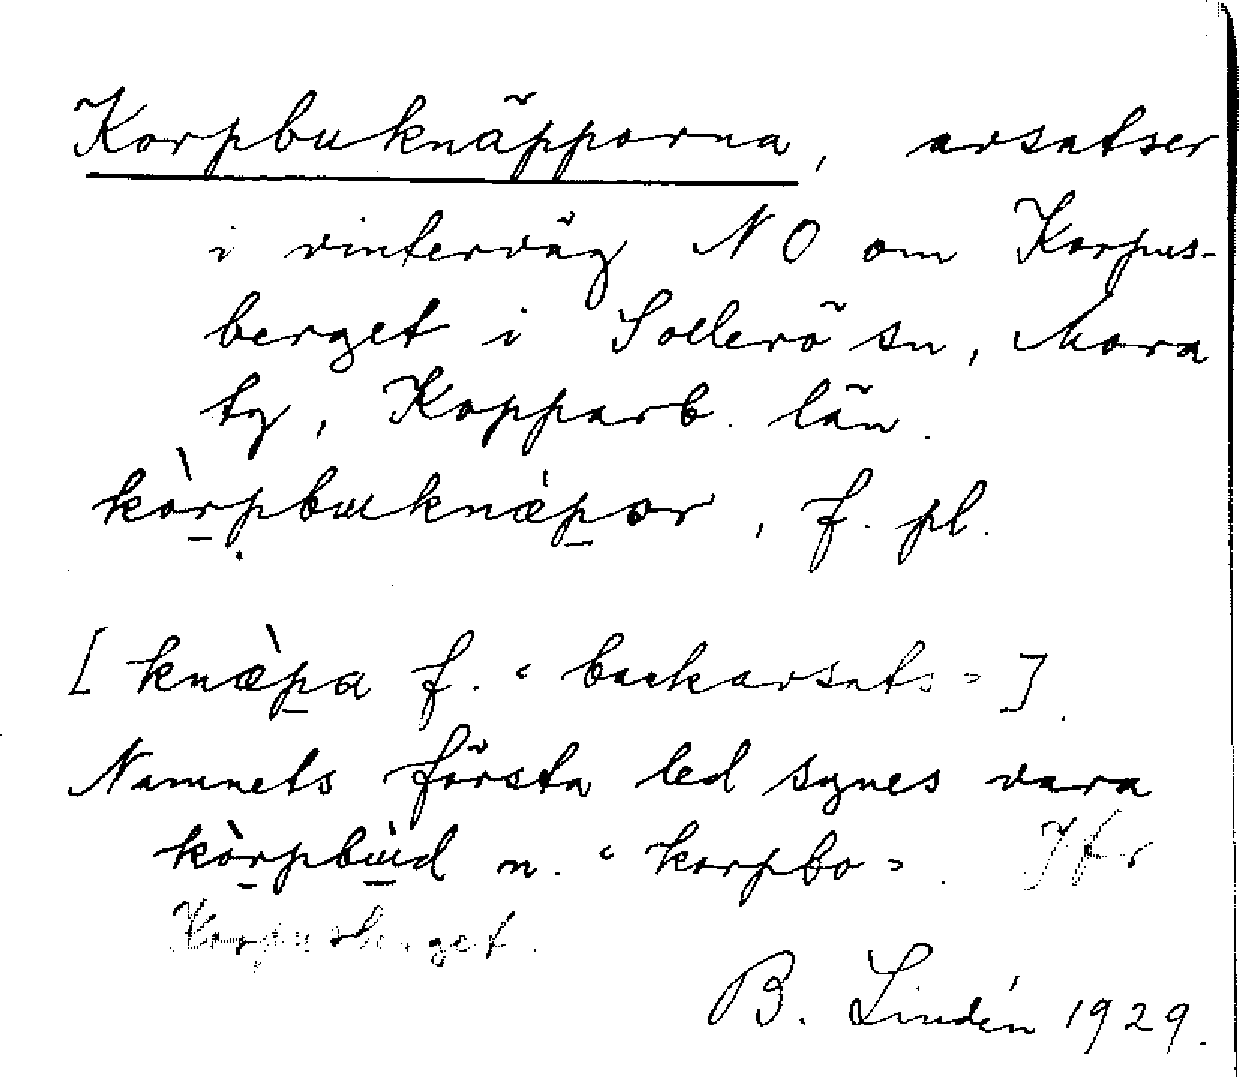 Korpbuknäpporna, avsatser
i vinterväg NO om Korpus-
berget i Sollerö sn, Mora
tg, Kopparb. län.
kòrpbuknæpor, f. pl.
[knæ̀pa f. "backavsats"].
Namnets första led synes vara
kòrpbùd n. "korpbo". Jfr
Korpusberget.
B. Lindén 1929.